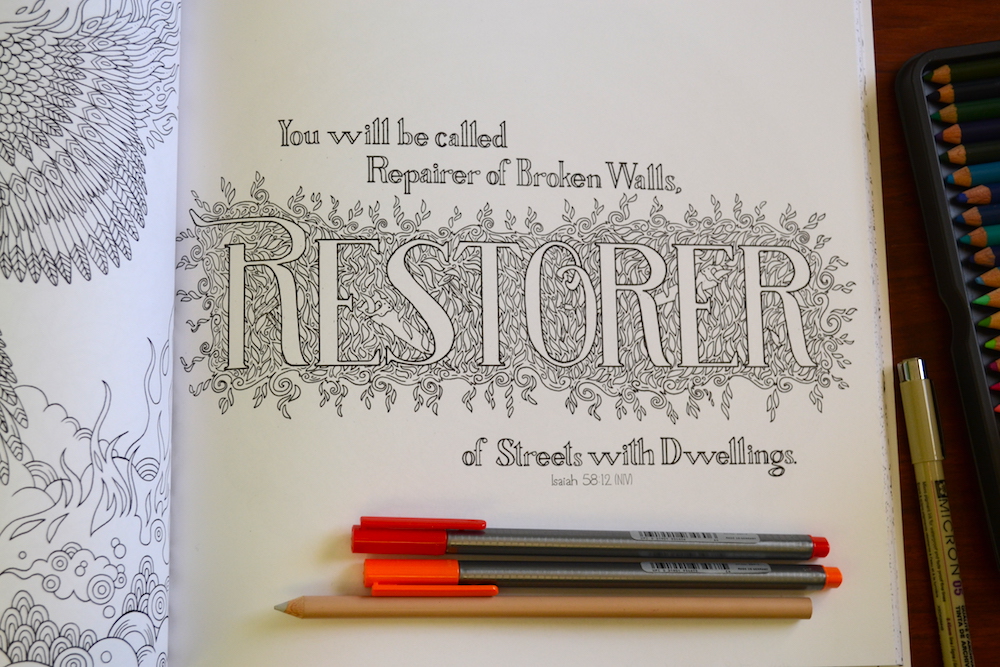 You will be called
Repairer of Broken Walls,
RESTORER
of Streets with Dwellings.
Isaiah 58:12 (NIV)
MICRON 05